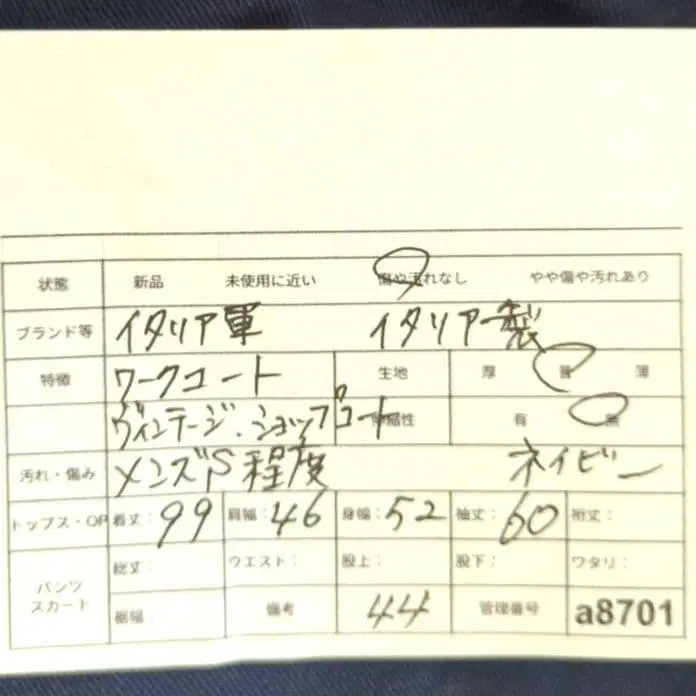 状態 新品 未使用に近い 傷や汚れなし やや傷や汚れあり
ブランド等 イタリア軍 イタリアー製
特徴 ワークコート 生地 厚 普 薄
ヴィンテージ・ショップコート 伸縮性 有 無
汚れ・傷み メンズS程度 ネイビー
トップス・OP 着丈: 99 肩幅: 46 身幅: 52 袖丈: 60 裄丈:
パンツ スカート 総丈: ウエスト: 股上: 股下: ワタリ:
裾幅: 備考 44 管理番号 a8701